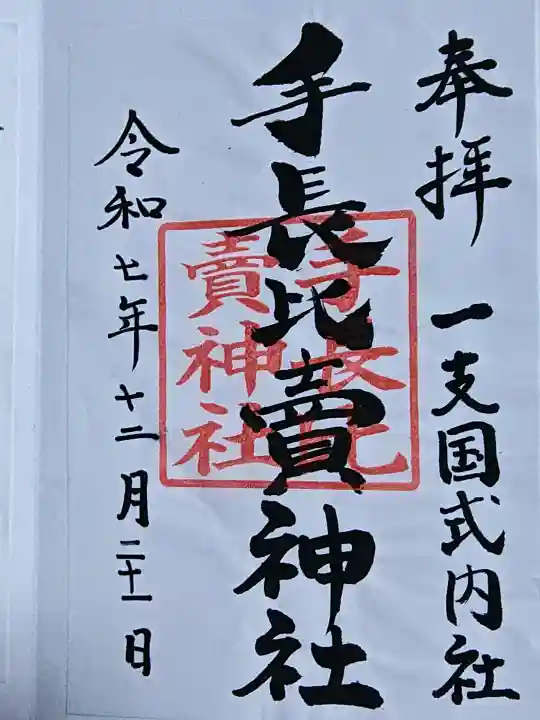 奉拝 一支国式内社
手長比賣神社
手長比
賣神社
令和七年十二月二十一日